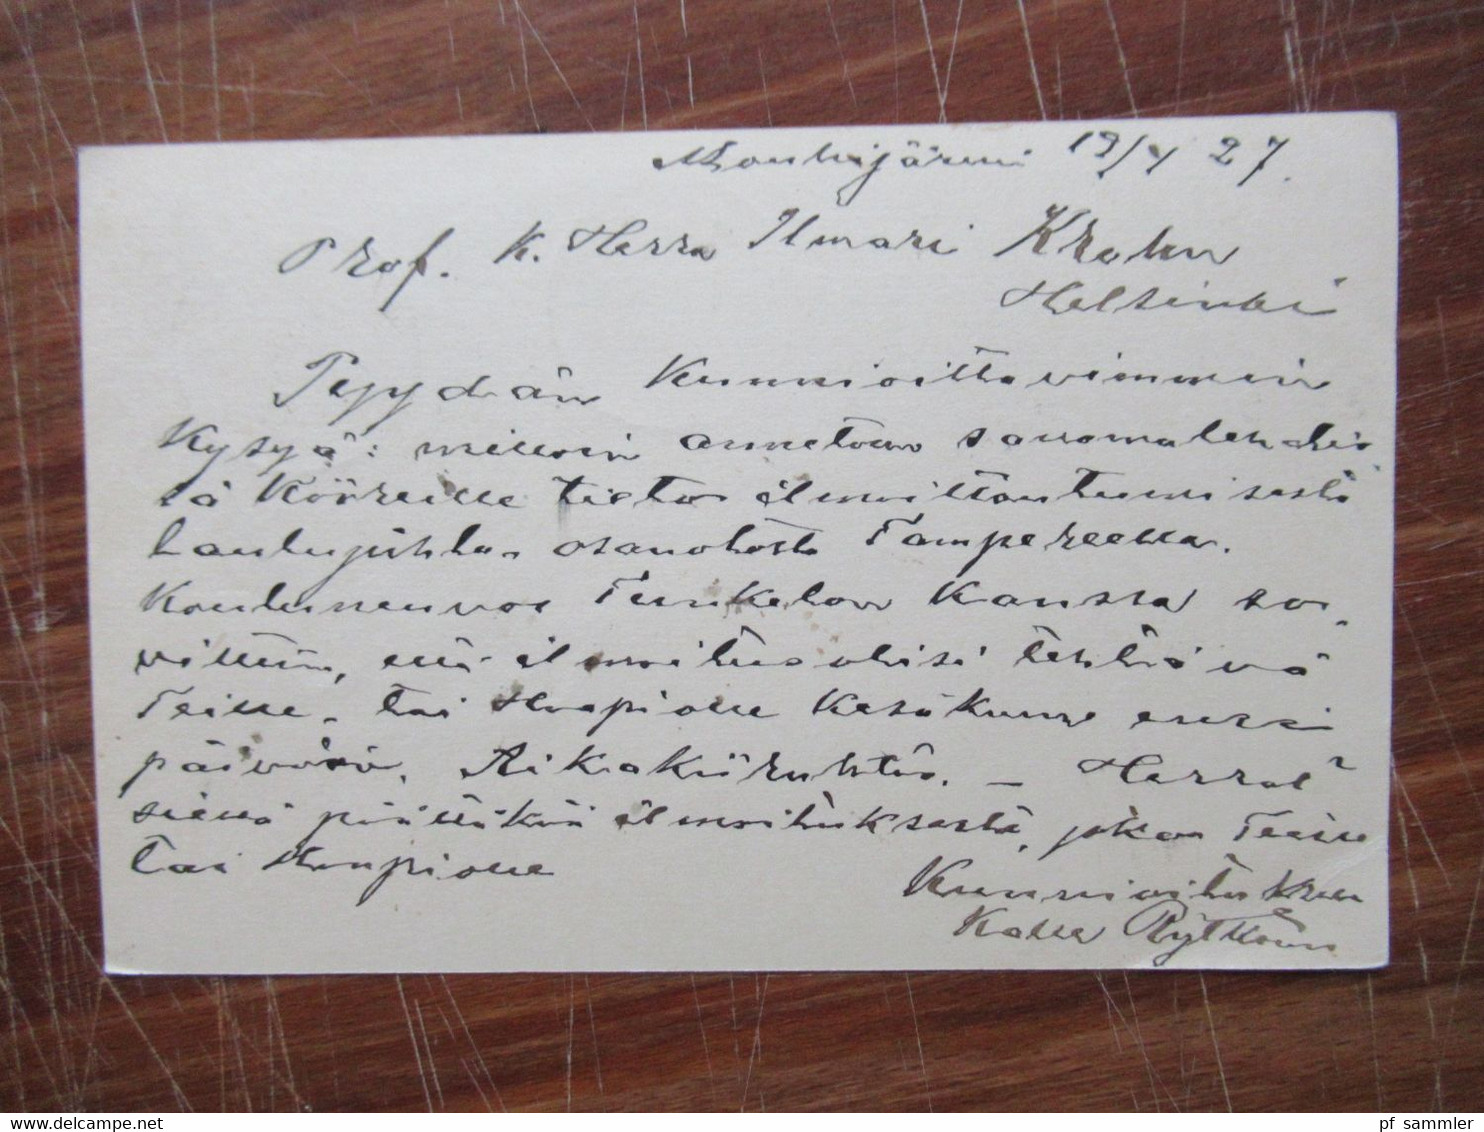 Mouhijärvi 19/4 27.
Prof. K. Herra Ilmari Krohn
Helsinki
Pyydän kunnioittavimmin
kysyä: milloin annetaan sanomalehdis
sä kööreille tieto ilmoittautumisesta
laulujuhlan osanotosta Tampereella.
Kouluneuvos Tunkelon kanssa so-
vittiin, että ilmoitus olisi tehtävä
Teille, tai Haapiolle kesäkuun ensi
päivänä. Aikakiiruhtaa. – Herrat
siellä päättäköä ilmoituksesta, joka Teille
tai Haapiolle
Kunnioituksen
Kalle Rytkönen
pf sammler